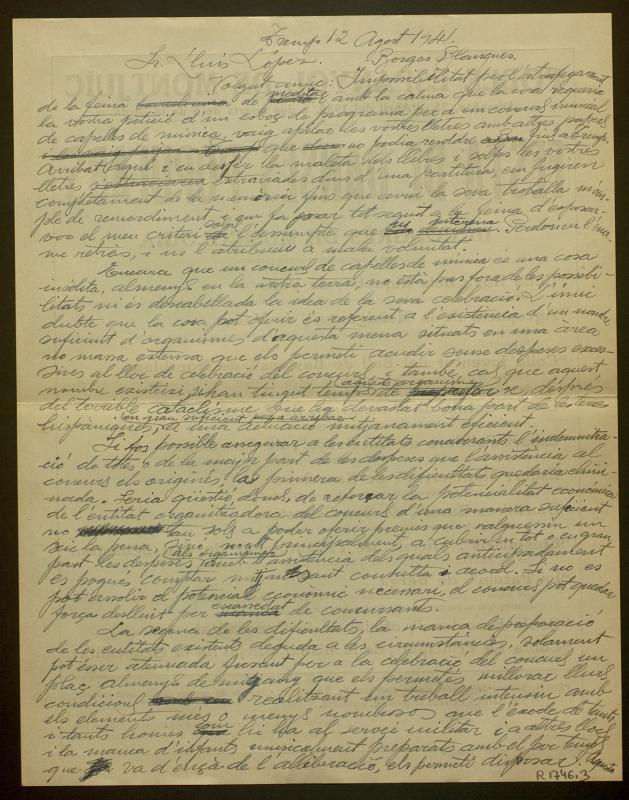 Tremp 12 Agost 1941.
Sr. Lluís López. Borges Blanques.
Volgut amic: Impossibilitat per l'atrafegament
de la feina de meditar amb la calma que la cosa requeria
la vostra petició d'un esbós de programa per a un concurs musical
de capelles de música, vaig aplegar les vostres lletres amb altres papers
que no podia resoldre fins a Tremp.
Arribat aquí i en desfer la maleta dels llibres i solfes les vostres
lletres extraviades dins d'una partitura, em fugiren
completament de la memòria fins que avui la seva troballa m'om-
ple de remordiment, i em fa posar tot seguit a la feina d'exposar-
vos el meu criteri sobre l'assumpte que us interessa. Perdoneu l'enor-
me retràs, i no l'atribuiu a mala voluntat.
Encara que un concurs de capelles de música és una cosa
insòlita, almenys en la nostra terra, no està pas fora de les possibili-
litats ni és descabellada la idea de la seva celebració. L'únic
dubte que la cosa pot oferir és referent a l'existència d'un nombre
suficient d'organismes d'aquesta mena situats en una àrea
no massa extensa que els permeti acudir sense despeses exces-
sives al lloc de celebració del concurs, i també, cas que aquest
nombre existeixi, si han tingut temps aquests organismes de refer-se després
del terrible cataclisme que ha devastat bona part de les terres
hispàniques, en grau suficient per a arribar a una actuació mitjanament eficient.
Si fos possible assegurar a les entitats concursants l'indemnitza-
ció de totes o de la major part de les despeses que l'assistència al
concurs els originés, la primera de les dificultats quedaria elimi-
nada. Seria qüestió, doncs, de reforçar la potencialitat econòmica
de l'entitat organitzadora del concurs d'una manera suficient
no tan sols a poder oferir premis que valguessin un
xic la pena, sinó principalment, a cubrir en tot o en gran
part les despeses als organismes l'assistència dels quals anticipadament
es pogués comptar mitjançant consulta i acord. Si no es
pot assolir el potencial econòmic necessari, el concurs pot quedar
força deslluït per escassedat de concursants.
La segona de les dificultats, la manca de preparació
de les entitats existents deguda a les circumstàncies, solament
pot ésser atenuada fixant per a la celebració del concurs un
plaç almenys de mig any que els permetés millorar llurs
condicions realitzant un treball intensiu amb
els elements més o menys nombrosos que l'èxode de tants
i tants homes com hi ha al servei militar i a altres llocs
i la manca d'infants musicalment preparats amb el poc temps
que va d'ençà de l'alliberació, els permeti disposar. Aquesta
R 1746.3